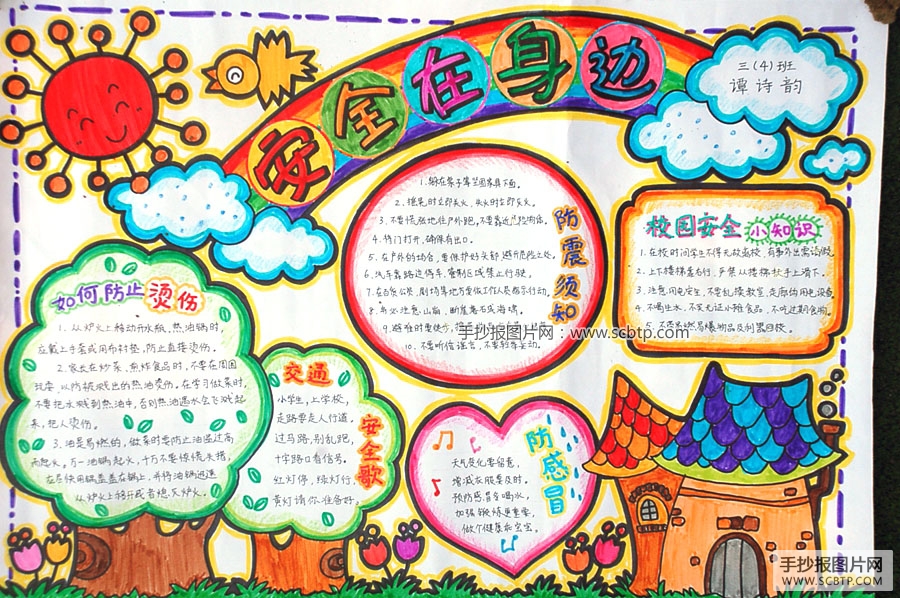 安全在身边
三(4)班
谭诗韵
防震须知
1.躲在桌子等坚固家具下面。
2.摇晃时立即关火,失火时立即灭火。
3.不要慌张地往户外跑,
4.将门打开,确保有出口。
5.在户外的场合,要保护好头部,避开危险之处。
6.汽车靠路边停车,管制区域禁止行驶。
8.务必注意山崩、断崖
9.避难时要徒步,
10.不要听信谣言,不要轻举妄动。
校园安全小知识
1.在校时间学生不得无故离校,有事外出需请假。
2.上下楼梯靠右行,严禁从楼梯扶手上滑下。
3.注意用电安全,不要乱摸教室、走廊的用电设备。
4.不喝生水,不买无证小摊食品,不吃过期食物。
5.不要带易燃易爆物品及利器回校。
如何防止烫伤
1.从炉火上移动开水瓶,热油锅时,
应戴上手套或用布衬垫,防止直接烫伤。
2.家长在炒菜、煎炸食品时,不要在周围
玩耍,以防被溅出的热油烫伤。在学习做菜时,
不要把水溅到热油中,否则热油遇水会飞溅起
来,把人烫伤。
3.油是易燃的,做菜时要防止油温过高
而起火。万一油锅起火,千万不要惊慌失措,
在尽快用锅盖盖在锅上,并将油锅迅速
从炉火上移开或者熄灭炉火。
交通
安全歌
小学生,上学校,
走路要走人行道,
过马路,别乱跑,
十字路口看信号。
红灯停,绿灯行,
黄灯请你准备好。
防感冒
天气变化要留意,
增减衣服要及时。
预防感冒多喝水,
加强锻炼更重要,
做个健康乖宝宝。
手抄报图片网:www.scbtp.com
手抄报图片网
WWW.SCBTP.COM